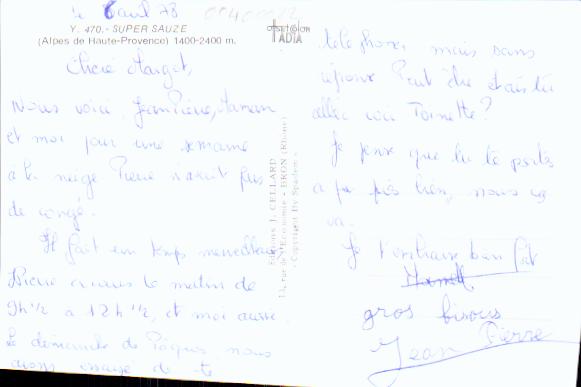 le 6 avril 78
Y. 470. - SUPER SAUZE
(Alpes de Haute-Provence) 1400-2400 m.
Chère Margot,
Nous voici, Jean Pierre, Maman
et moi pour une semaine
à la neige Pierre n'avait pas
de congé.
Il fait un temps merveilleux
Pierre a cours le matin de
9h 1/2 à 12h 1/2, et moi aussi.
Le dimanche de Pâques nous
avons essayé de te
Editions J. CELLARD
"Economie" - BRON (Rhône)
Copyright by Spadem
ADIA
téléphoner, mais sans
réponse Peut être étais tu
allée voir Toinette?
Je pense que tu te portes
à peu près bien, nous ça
va.
Je t'embrasse bien fort
gros bisous
Jean Pierre